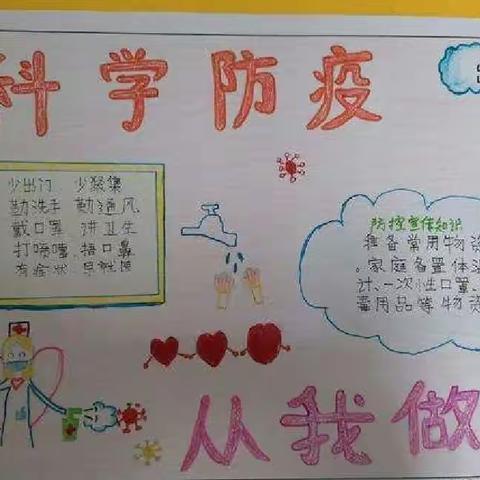 科学防疫
少出门 少聚集
勤洗手 勤通风
戴口罩 讲卫生
打喷嚏 捂口鼻
有症状 早就医
防控宣传知识
准备常用物资
。家庭备置体温
计、一次性口罩、
毒用品等物资
从我做